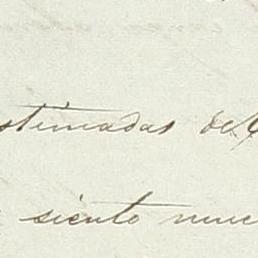 stimadas de
siento muc